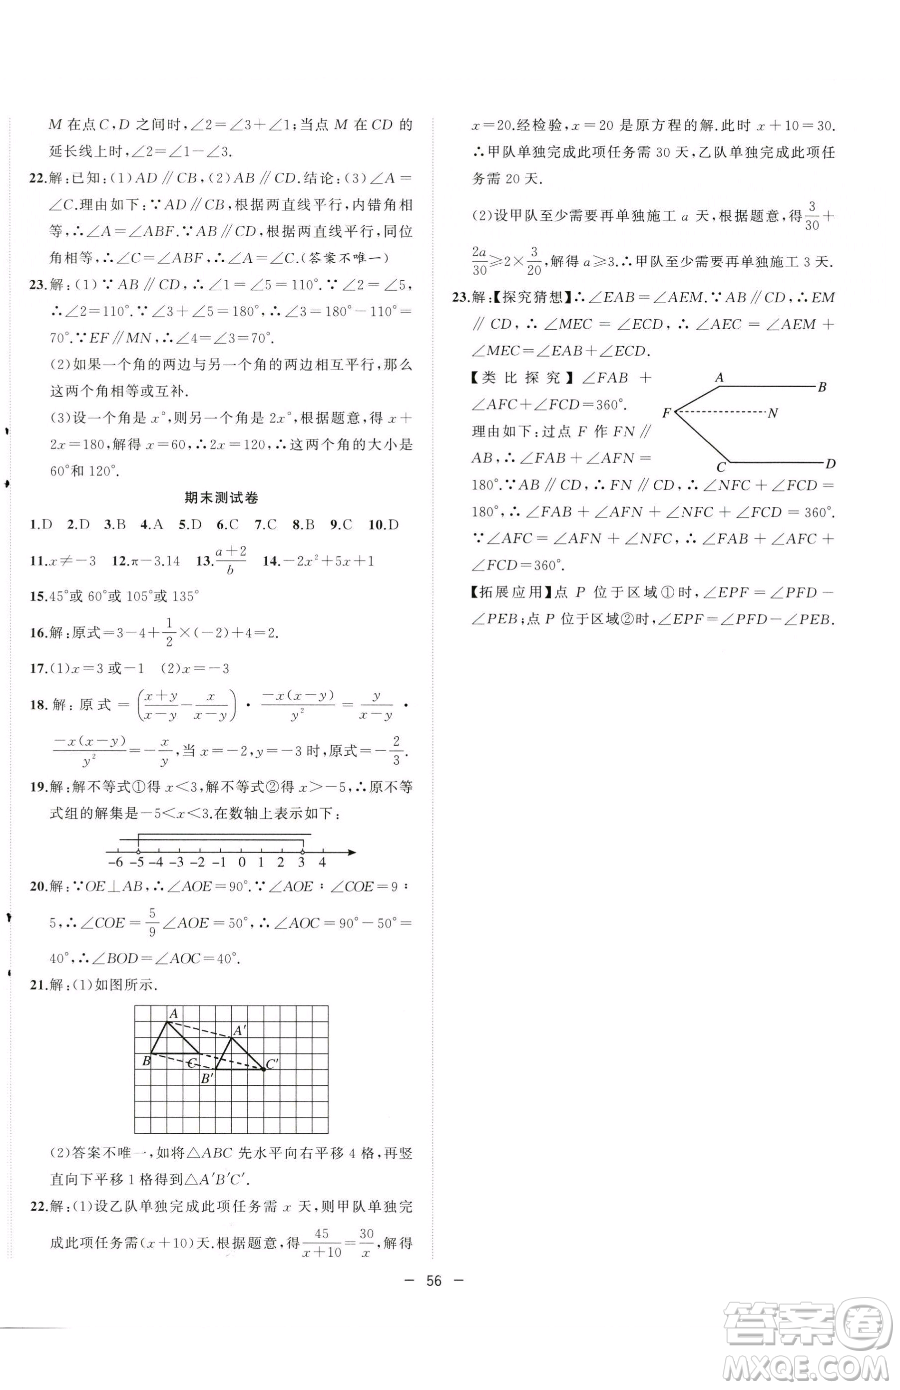 M 在点C,D 之间时,∠2=∠3+∠1;当点 M 在CD 的
延长线上时,∠2=∠1-∠3.
22.解:已知:(1)AD∥CB,(2)AB∥CD.结论:(3)∠A=
∠C.理由如下:∵AD∥CB,根据两直线平行,内错角相
等,∴∠A=∠ABF.∵AB∥CD,根据两直线平行,同位
角相等,∴∠C=∠ABF,∴∠A=∠C.(答案不唯一)
23.解:(1)∵AB∥CD,∴∠1=∠5=110°.∵∠2=∠5,
∴∠2=110°.∵∠3+∠5=180°,∴∠3=180°-110°=
70°.∵EF∥MN,∴∠4=∠3=70°.
(2)如果一个角的两边与另一个角的两边相互平行,那么
这两个角相等或互补.
(3)设一个角是x°,则另一个角是2x°,根据题意,得x+
2x=180,解得x=60,∴2x=120,∴这两个角的大小是
60°和120°.
期末测试卷
1.D 2.D 3.B 4.A 5.D 6.C 7.C 8.B 9.C 10.D
11.x≠-3 12.π-3.14 13.(a+2)/b 14.-2x²+5x+1
15.45°或60°或105°或135°
16.解:原式=3-4+1/2×(-2)+4=2.
17.(1)x=3或-1 (2)x=-3
18.解:原式=((x+y)/(x-y)-x/(x-y))·(-x(x-y))/y²=y/(x-y)·
(-x(x-y))/y²=-x/y,当x=-2,y=-3时,原式=-2/3.
19.解:解不等式①得x<3,解不等式②得x>-5,∴原不等
式组的解集是-5<x<3.在数轴上表示如下:
-6 -5 -4 -3 -2 -1 0 1 2 3 4
20.解:∵OE⊥AB,∴∠AOE=90°.∵∠AOE∶∠COE=9∶
5,∴∠COE=5/9∠AOE=50°,∴∠AOC=90°-50°=
40°,∴∠BOD=∠AOC=40°.
21.解:(1)如图所示.
A
A′
B
C
B′
C′
(2)答案不唯一,如将△ABC先水平向右平移4格,再竖
直向下平移1格得到△A′B′C′.
22.解:(1)设乙队单独完成此项任务需 x 天,则甲队单独完
成此项任务需(x+10)天.根据题意,得45/(x+10)=30/x,解得
x=20.经检验,x=20 是原方程的解.此时 x+10=30.
∴甲队单独完成此项任务需 30 天,乙队单独完成此项任
务需 20 天.
(2)设甲队至少需要再单独施工 a 天,根据题意,得3/30+
2a/30≥2×3/20,解得a≥3.∴甲队至少需要再单独施工3天.
23.解:【探究猜想】∴∠EAB=∠AEM.∵AB∥CD,∴EM
∥CD,∴∠MEC=∠ECD,∴∠AEC=∠AEM+
∠MEC=∠EAB+∠ECD.
【类比探究】∠FAB+
∠AFC+∠FCD=360°.
理由如下:过点 F 作 FN∥
AB,∴∠FAB+∠AFN=
180°.∵AB∥CD,∴FN∥CD,∴∠NFC+∠FCD=
180°,∴∠FAB+∠AFN+∠NFC+∠FCD=360°.
∵∠AFC=∠AFN+∠NFC,∴∠FAB+∠AFC+
∠FCD=360°.
【拓展应用】点 P 位于区域①时,∠EPF=∠PFD-
∠PEB;点 P 位于区域②时,∠EPF=∠PEB-∠PFD.
A
B
F
N
C
D
— 56 —
答案圈
MXQE.COM